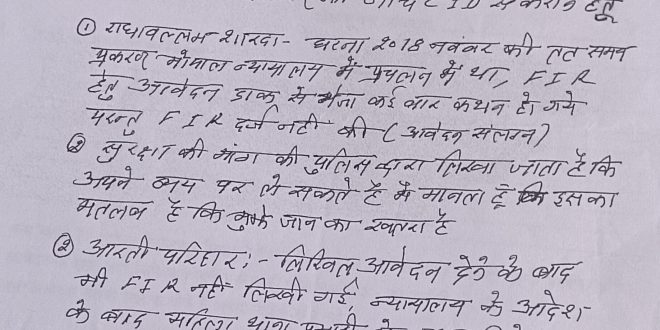 हेतू
① राधावल्लभ शारदा - घटना २०१8 नवंबर की तत समय
प्रकरण भोपाल न्यायालय में प्रचलन में था, FIR
हेतु आवेदन डाक से भेजा कई बार कथन हो गये
परन्तु FIR दर्ज नही की (आवेदन संलग्न)
② सुरक्षा की मांग की पुलिस द्वारा लिखा जाता है कि
अपने व्यय पर ले सकते है मै मानता हूँ कि इसका
मतलब है कि मुझे जान का खतरा है
② आरती परिहार :- लिखित आवेदन देने के बाद
भी FIR नही लिखी गई, न्यायालय के आदेश
के बाद महिला थाना